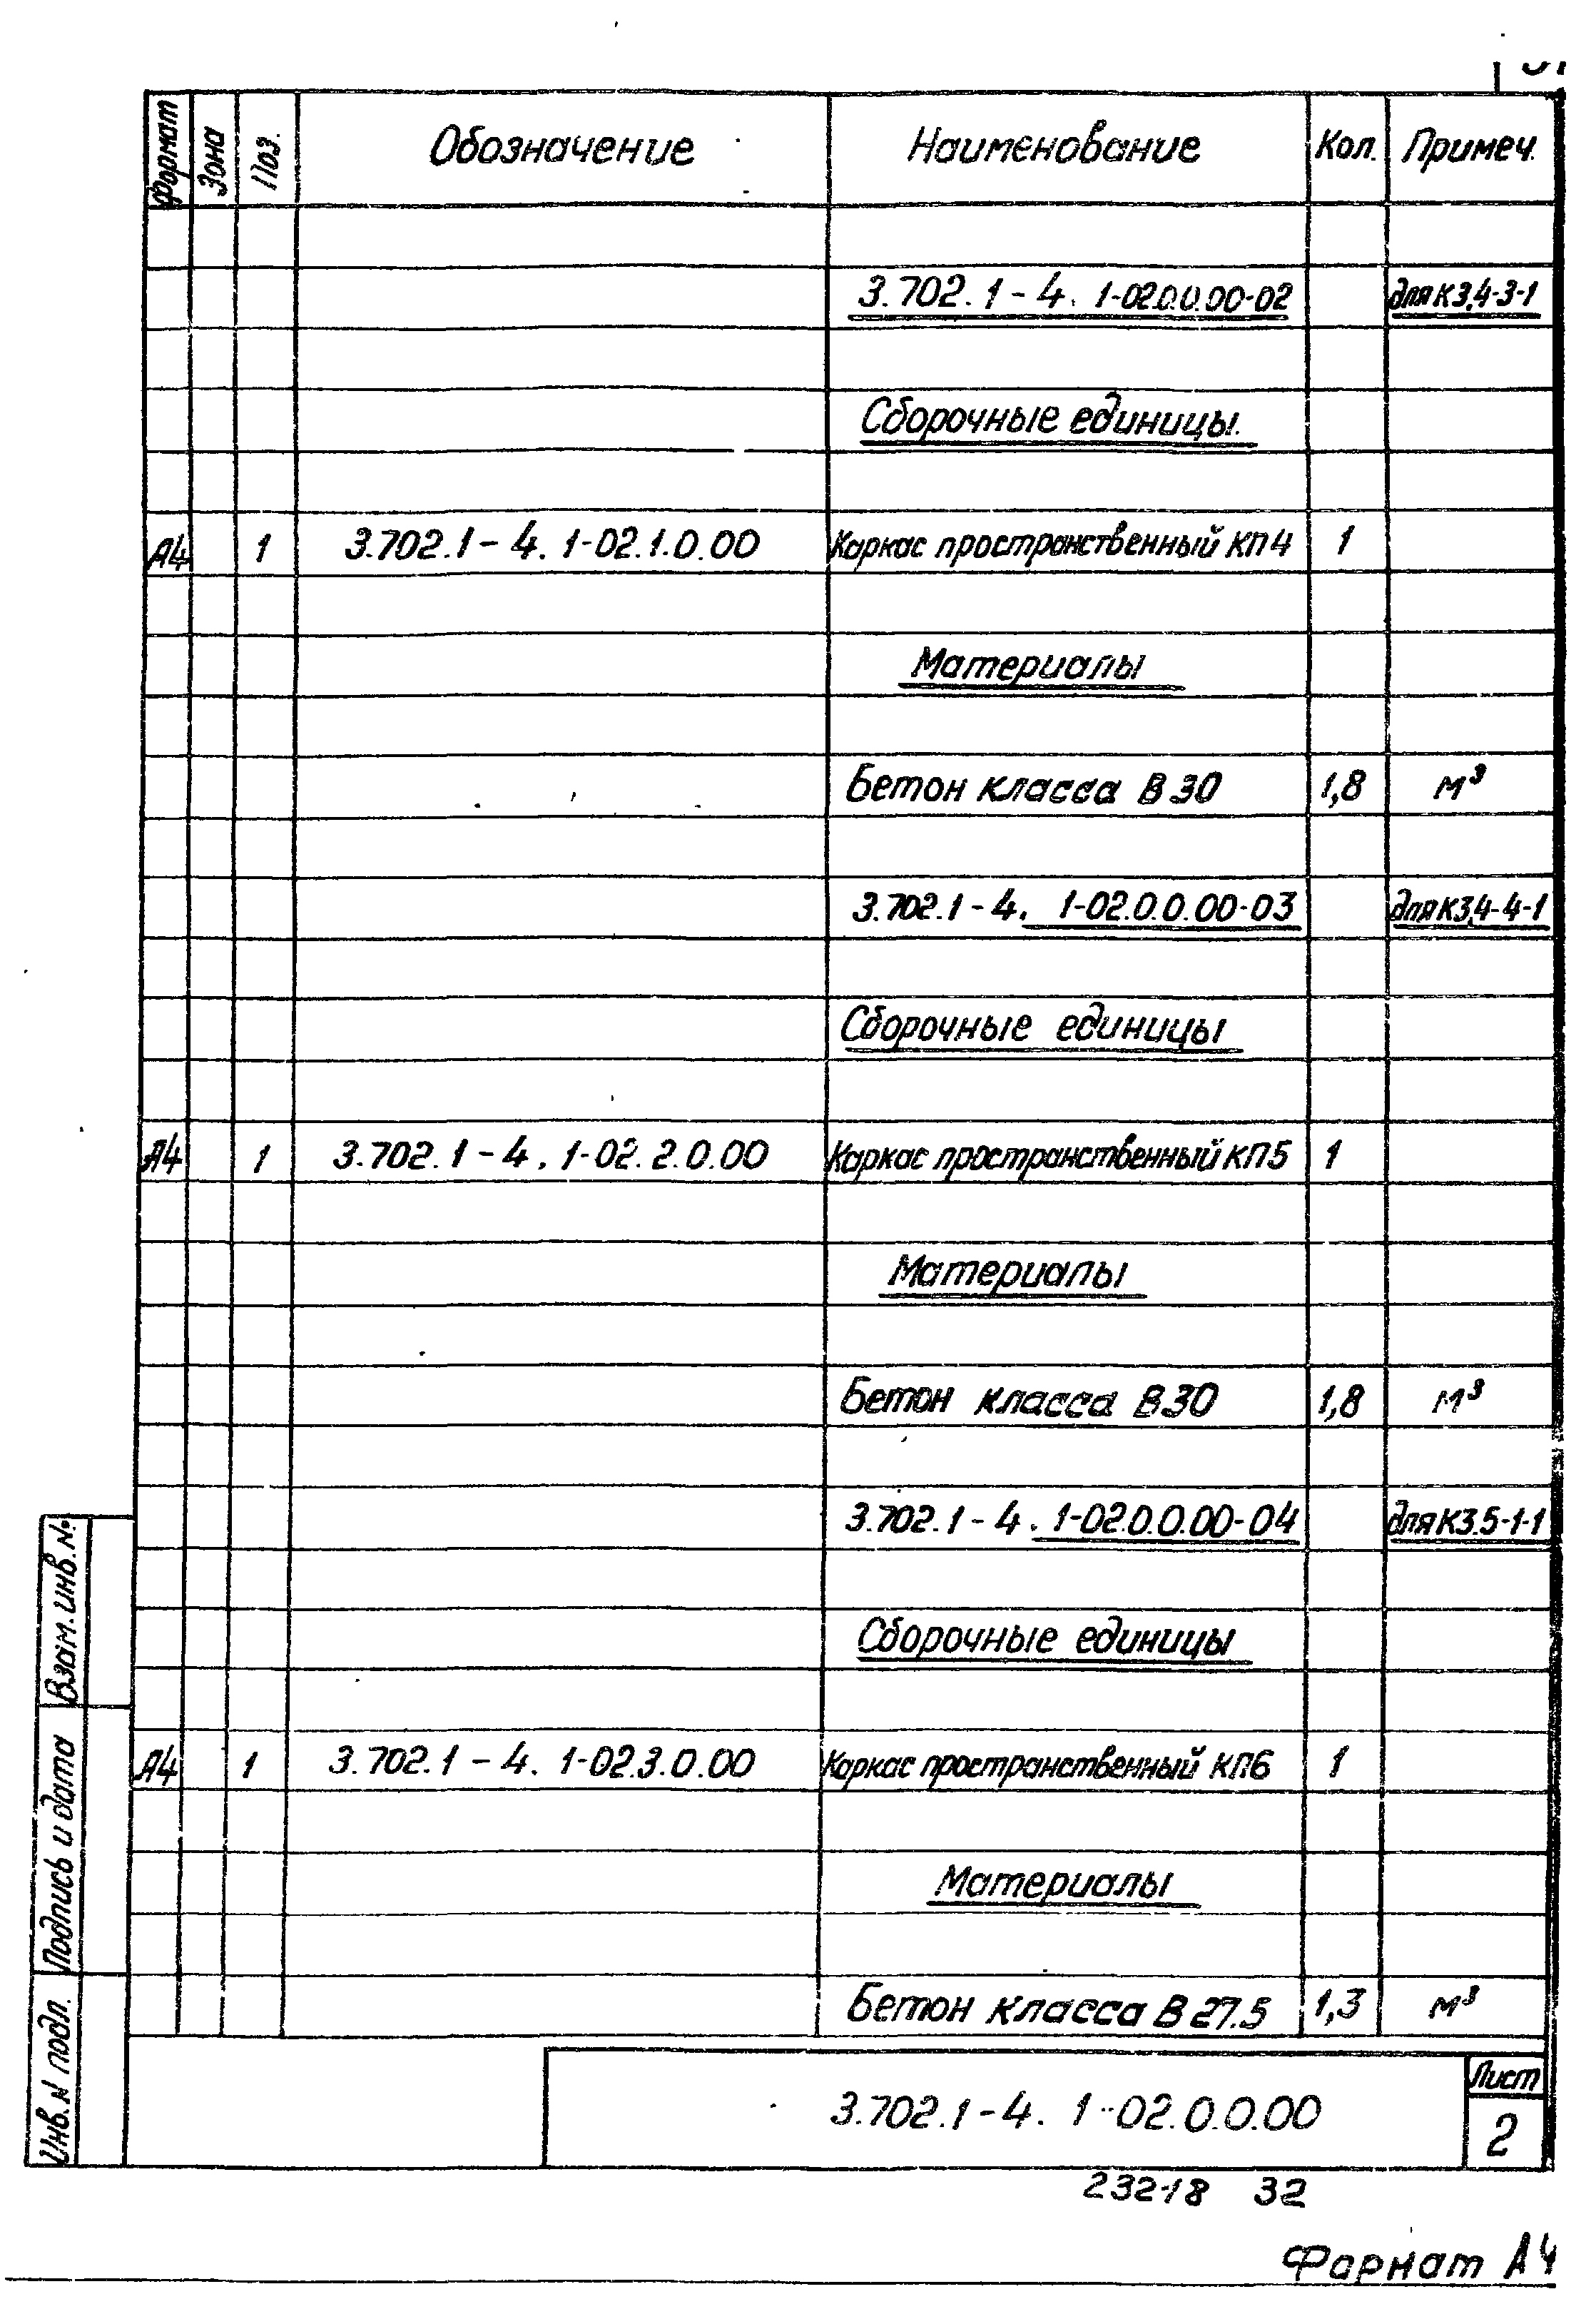 Формат Зона Поз. Обозначение Наименование Кол. Примеч.
3.702.1-4. 1-02.0.0.00-02 для К3.4-3-1
Сборочные единицы.
А4 1 3.702.1-4. 1-02.1.0.00 Каркас пространственный КП4 1
Материалы
Бетон класса В30 1,8 м³
3.702.1-4. 1-02.0.0.00-03 для К3.4-4-1
Сборочные единицы
А4 1 3.702.1-4. 1-02.2.0.00 Каркас пространственный КП5 1
Материалы
Бетон класса В30 1,8 м³
3.702.1-4. 1-02.0.0.00-04 для К3.5-1-1
Сборочные единицы
А4 1 3.702.1-4. 1-02.3.0.00 Каркас пространственный КП6 1
Материалы
Бетон класса В27.5 1,3 м³
Взам. инв. №
Подпись и дата
Инв. N подл.
3.702.1-4. 1-02.0.0.00
Лист
2
23218 32
Формат А4